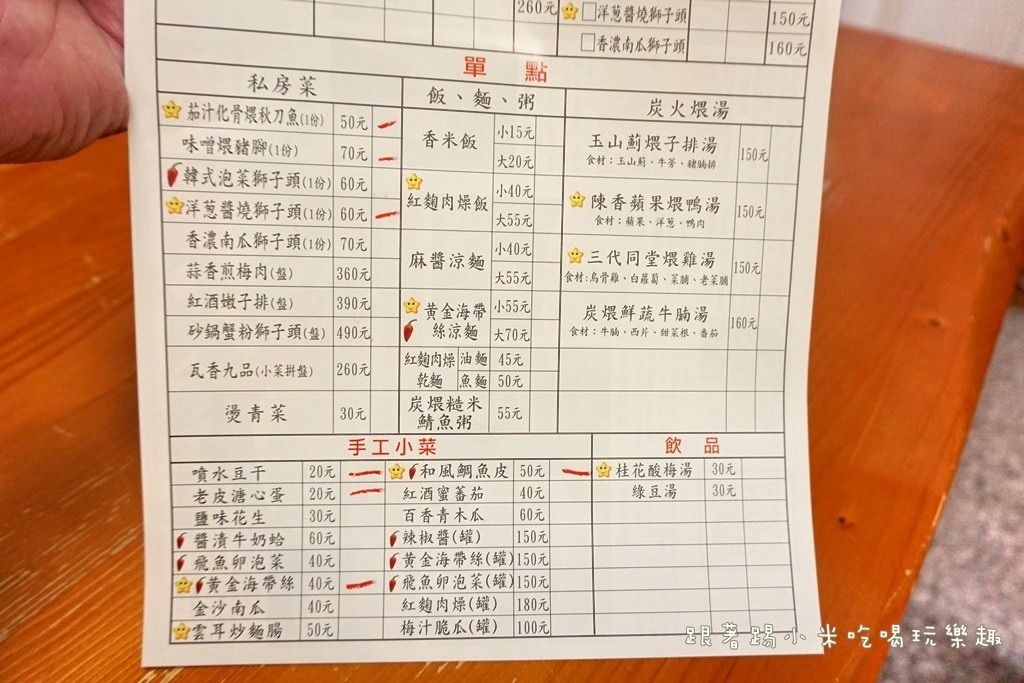 260元
洋蔥醬燒獅子頭 150元
香濃南瓜獅子頭 160元
單 點
私房菜
茄汁化骨煨秋刀魚(1份) 50元
味噌煨豬腳(1份) 70元
韓式泡菜獅子頭(1份) 60元
洋蔥醬燒獅子頭(1份) 60元
香濃南瓜獅子頭(1份) 70元
蒜香煎梅肉(盤) 360元
紅酒嫩子排(盤) 390元
砂鍋蟹粉獅子頭(盤) 490元
瓦香九品(小菜拼盤) 260元
燙青菜 30元
飯、麵、粥
香米飯 小15元
大20元
紅麴肉燥飯 小40元
大55元
麻醬涼麵 小40元
大55元
黃金海帶 小55元
絲涼麵 大70元
紅麴肉燥 油麵 45元
乾麵 魚麵 50元
炭煨糙米
鯖魚粥 55元
炭火煨湯
玉山薊煨子排湯 150元
食材：玉山薊、牛蒡、豬腩排
陳香蘋果煨鴨湯 150元
食材：蘋果、洋蔥、鴨肉
三代同堂煨雞湯 150元
食材:烏骨雞、白蘿蔔、菜脯、老菜脯
炭煨鮮蔬牛腩湯 160元
食材：牛腩、西芹、甜菜根、番茄
手工小菜
噴水豆干 20元
老皮溏心蛋 20元
鹽味花生 30元
醬漬牛奶蛤 60元
飛魚卵泡菜 40元
黃金海帶絲 40元
金沙南瓜 40元
雲耳炒麵腸 50元
和風鯛魚皮 50元
紅酒蜜蕃茄 40元
百香青木瓜 60元
辣椒醬(罐) 150元
黃金海帶絲(罐) 150元
飛魚卵泡菜(罐) 150元
紅麴肉燥(罐) 180元
梅汁脆瓜(罐) 100元
飲 品
桂花酸梅湯 30元
綠豆湯 30元
跟著踢小米吃喝玩樂趣